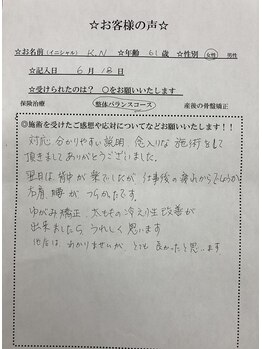 ☆お客様の声☆
☆お名前(イニシャル) K.N ☆年齢 61 歳 ☆性別 女性 男性
☆記入日 6月18日
☆受けられたのは? ○をお願いいたします
保険治療 整体バランスコース 産後の骨盤矯正
◎施術を受けたご感想や応対についてなどお願いいたします!!
対応 分かりやすい説明 念入りな施術をして
頂きましてありがとうございました。
翌日は背中が楽でしたが 仕事後の疲れからでしょうか
右肩、腰がつらかたです。
ゆがみ矯正、太ももの冷えり性改善が
出来ましたら うれしく思います
他店は わかりませんが、とても良かったと思います